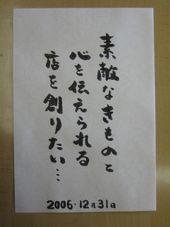 素敵なきものと
心を伝えられる
店を創りたい…
2006・12月31日